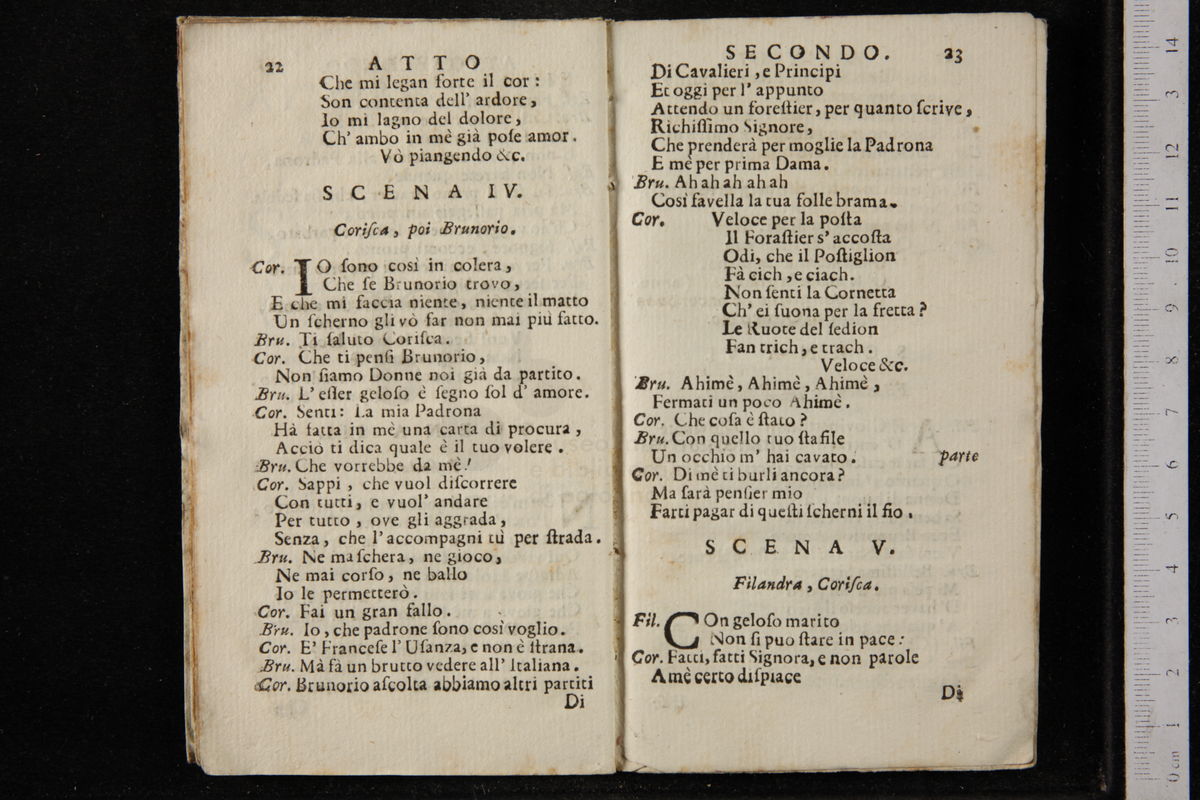 22 ATTO
Che mi legan forte il cor :
Son contenta dell' ardore,
Io mi lagno del dolore,
Ch' ambo in mè già poſe amor.
Vò piangendo &c.
SCENA IV.
Coriſca, poi Brunorio.
Cor. IO ſono così in colera,
Che ſe Brunorio trovo,
E che mi faccia niente, niente il matto
Un ſcherno gli vò far non mai più fatto.
Bru. Ti ſaluto Coriſca.
Cor. Che ti penſi Brunorio,
Non ſiamo Donne noi già da partito.
Bru. L' eſſer geloſo è ſegno ſol d' amore.
Cor. Senti: La mia Padrona
Hà fatta in mè una carta di procura,
Acciò ti dica quale è il tuo volere.
Bru. Che vorrebbe da mè!
Cor. Sappi, che vuol diſcorrere
Con tutti, e vuol' andare
Per tutto, ove gli aggrada,
Senza, che l' accompagni tù per ſtrada.
Bru. Ne maſchera, ne gioco,
Ne mai corſo, ne ballo
Io le permetterò.
Cor. Fai un gran fallo.
Bru. Io, che padrone ſono così voglio.
Cor. E' Franceſe l' Uſanza, e non è ſtrana.
Bru. Mà fà un brutto vedere all' Italiana.
Cor. Brunorio aſcolta abbiamo altri partiti
Di
SECONDO. 23
Di Cavalieri, e Principi
Et oggi per l' appunto
Attendo un foreſtier, per quanto ſcrive,
Richiſſimo Signore,
Che prenderà per moglie la Padrona
E mè per prima Dama.
Bru. Ah ah ah ah ah
Così favella la tua folle brama.
Cor. Veloce per la poſta
Il Foraſtier s' accoſta
Odi, che il Poſtiglion
Fà cich, e ciach.
Non ſenti la Cornetta
Ch' ei ſuona per la fretta?
Le Ruote del ſedion
Fan trich, e trach.
Veloce &c.
Bru. Ahimè, Ahimè, Ahimè,
Fermati un poco Ahimè.
Cor. Che coſa è ſtato?
Bru. Con quello tuo ſtafile
Un occhio m' hai cavato. parte
Cor. Di mè ti burli ancora?
Ma ſarà penſier mio
Farti pagar di queſti ſcherni il fio.
SCENA V.
Filandra, Coriſca.
Fil. COn geloſo marito
Non ſi puo ſtare in pace:
Cor. Fatti, fatti Signora, e non parole
A mè certo diſpiace
Di
0 cm 1 2 3 4 5 6 7 8 9 10 11 12 3 14